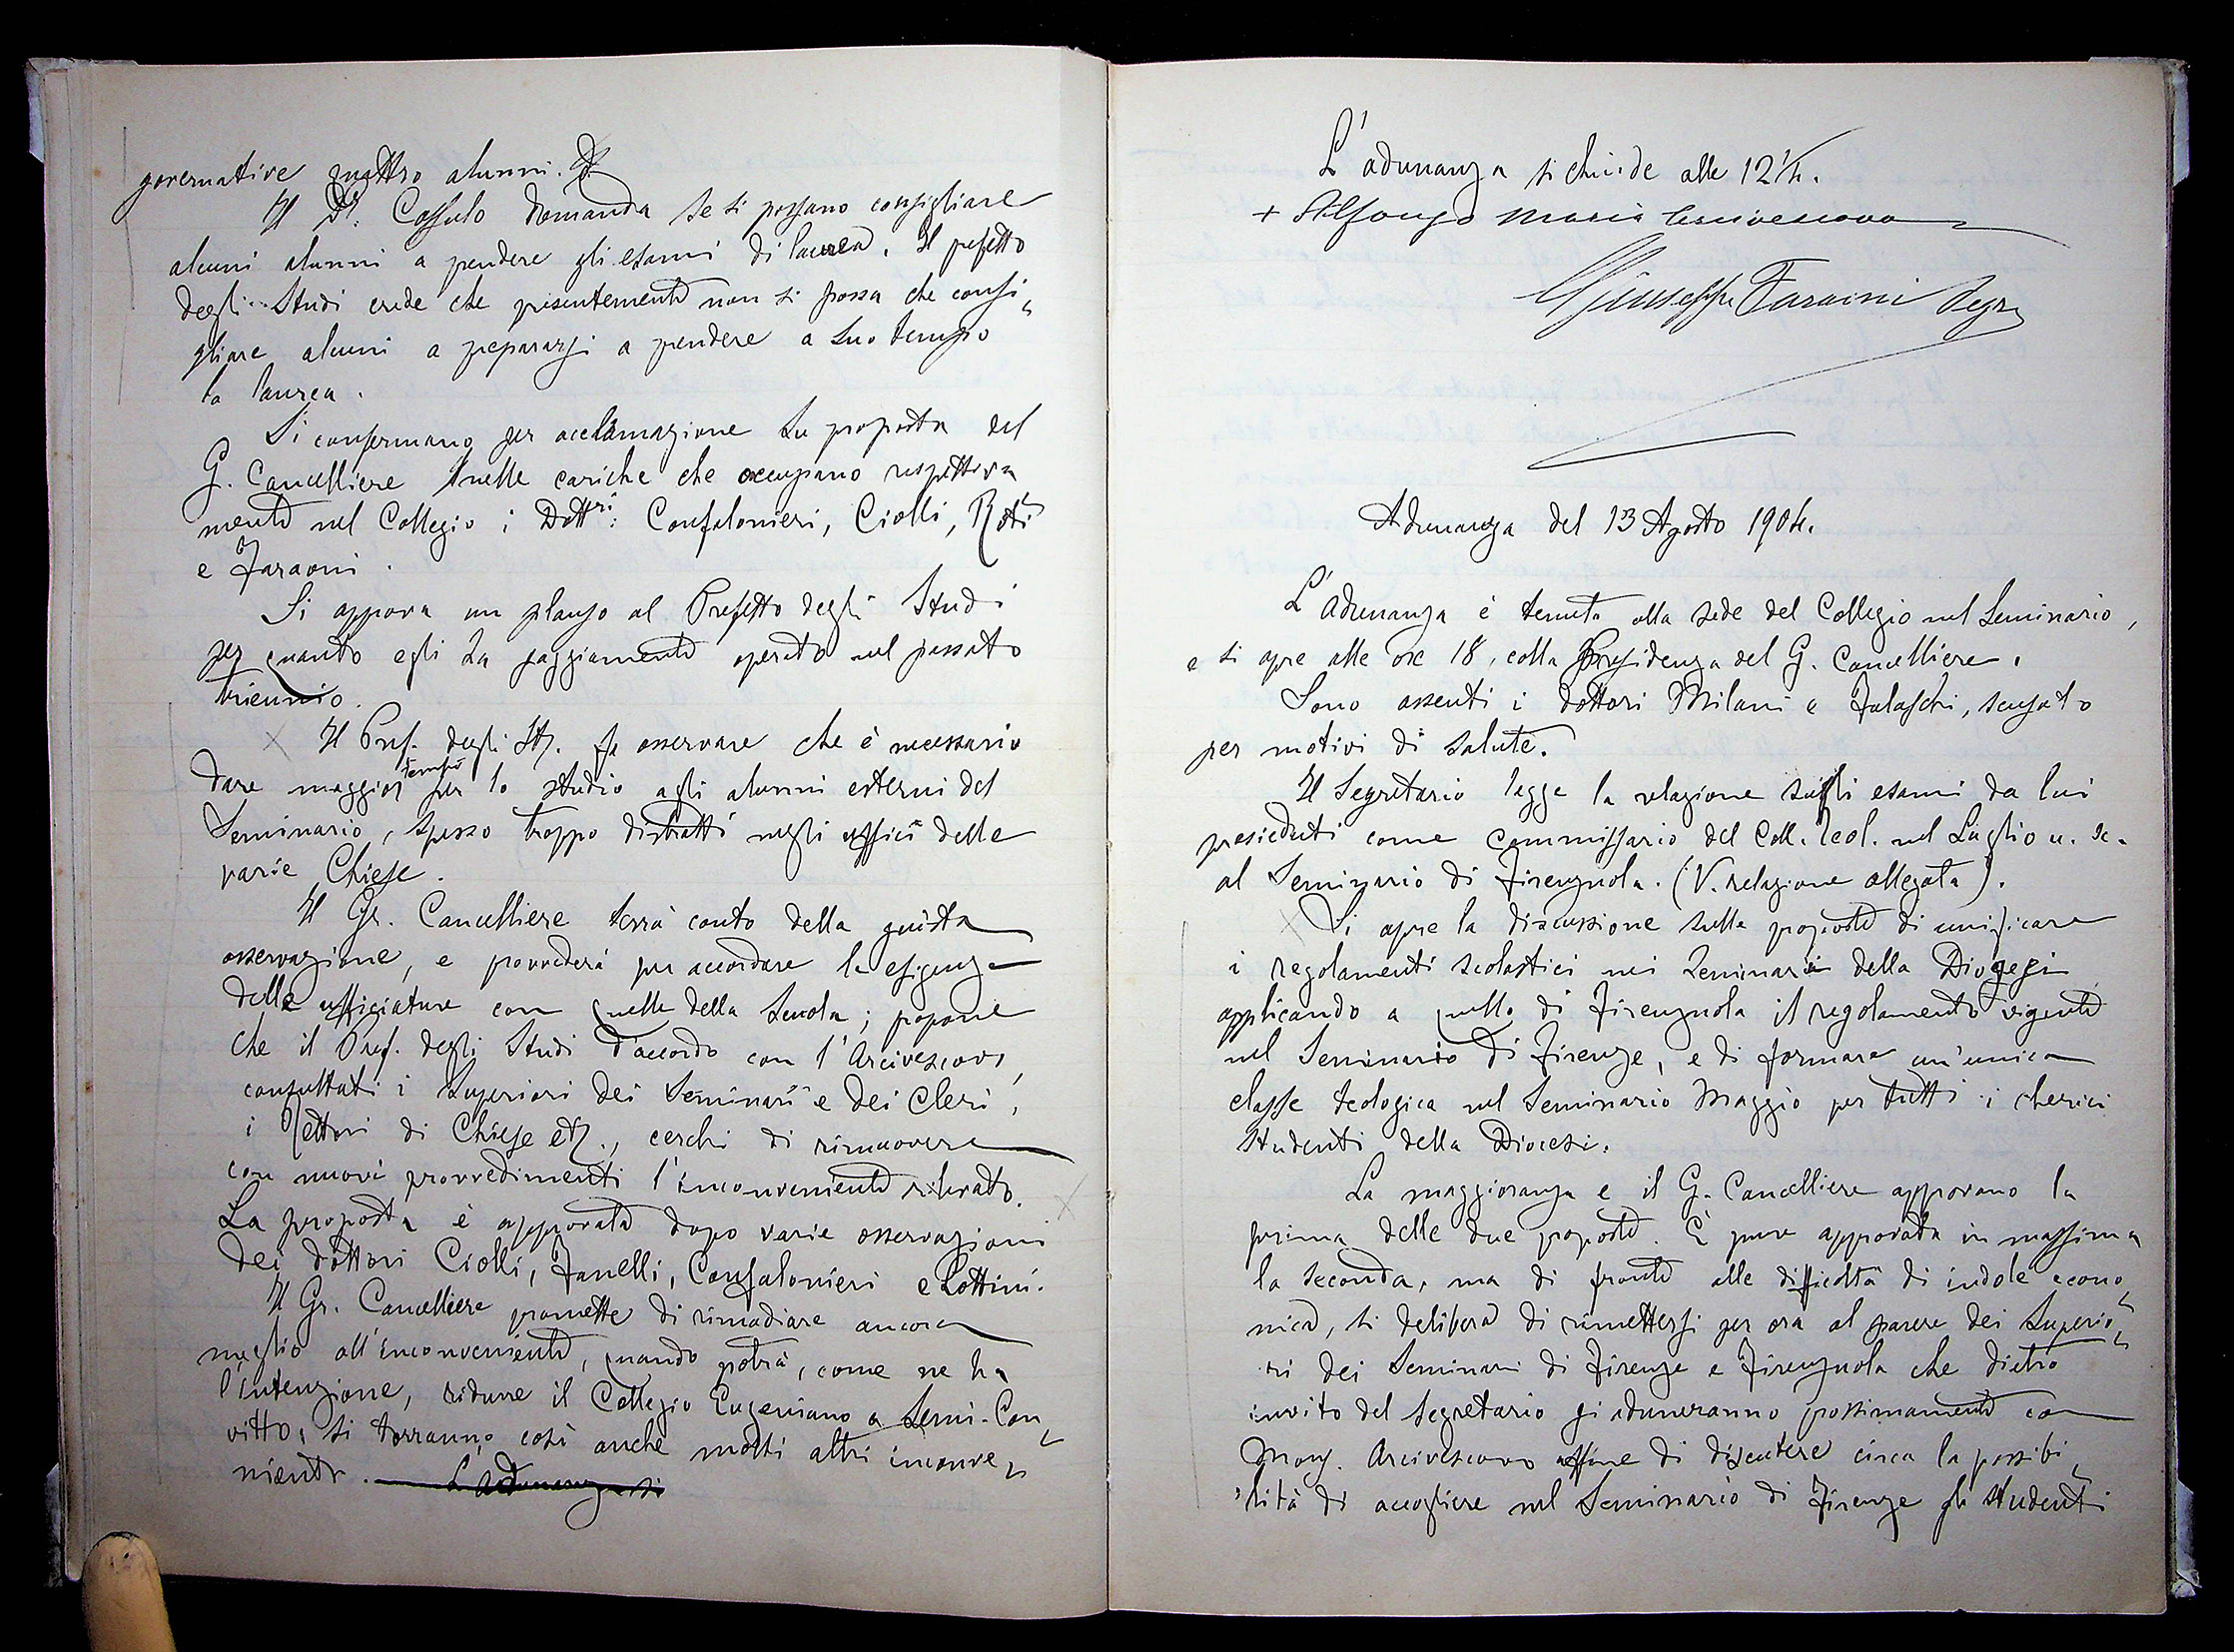 governative quattro alunni.
Il Dr. Cossulo domanda se si possano consigliare
alcuni alunni a prendere gli esami di laurea. Il prefetto
degli Studi crede che presentemente non si possa che consi„
gliare alcuni a prepararsi a prendere a suo tempo
la laurea.
Si confermano per acclamazione su proposta del
G. Cancelliere nelle cariche che occupano respettiva
mente nel Collegio i Dottri: Confalonieri, Ciolli, Roti
e Faraoni.
Si approva un plauso al Prefetto degli Studi
per quanto egli ha saggiamente operato nel passato
triennio.
Il Pref. degli St. fa osservare che è necessario
dare maggior tempo per lo studio agli alunni esterni del
Seminario, spesso troppo distratti negli uffici delle
varie Chiese.
Il Gr. Cancelliere terrà conto della giusta
osservazione, e provvederà per accordare le esigenze
delle ufficiature con quelle della Scuola; propone
che il Pref. degli Studi d'accordo con l'Arcivescovo,
consultati i Superiori dei Seminari e dei Cleri,
i Rettori di Chiese etz., cerchi di rimuovere
con nuovi provvedimenti l'inconveniente rilevato.
La proposta è approvata dopo varie osservazioni
dei dottori Ciolli, Fanelli, Confalonieri e Lottini.
Il Gr. Cancelliere promette di rimediare ancora
meglio all'inconveniente, quando potrà, come ne ha
l'intenzione, ridurre il Collegio Eugeniano a Semi-Con„
vitto, si torranno così anche molti altri inconve„
nienti. L'adunanza si
L'adunanza si chiude alle 12 1/4.
+ Alfonso Maria Arcivescovo
Giuseppe Faraoni Segr.
Adunanza del 13 Agosto 1904.
L'Adunanza è tenuta alla sede del Collegio nel Seminario,
e si apre alle ore 18, colla Presidenza del G. Cancelliere.
Sono assenti i dottori Milani e Falaschi, scusato
per motivi di salute.
Il Segretario legge la relazione sugli esami da lui
presieduti come Commissario del Coll. Teol. nel Luglio u. s.
al Seminario di Firenzuola. (V. relazione allegata).
Si apre la discussione sulle proposte di unificare
i regolamenti scolastici nei Seminari della Diocesi
applicando a quello di Firenzuola il regolamento vigente
nel Seminario di Firenze, e di formare un'unica
classe teologica nel Seminario Maggio per tutti i cherici
studenti della Diocesi.
La maggioranza e il G. Cancelliere approvano la
prima delle due proposte. È pure approvata in massima
la seconda, ma di fronte alle difficoltà di indole econo„
mica, si delibera di rimettersi per ora al parere dei Superio„
ri dei Seminari di Firenze e Firenzuola che dietro
invito del Segretario si aduneranno prossimamente con
Mons. Arcivescovo affine di discutere circa la possibi„
lità di accogliere nel Seminario di Firenze gli studenti